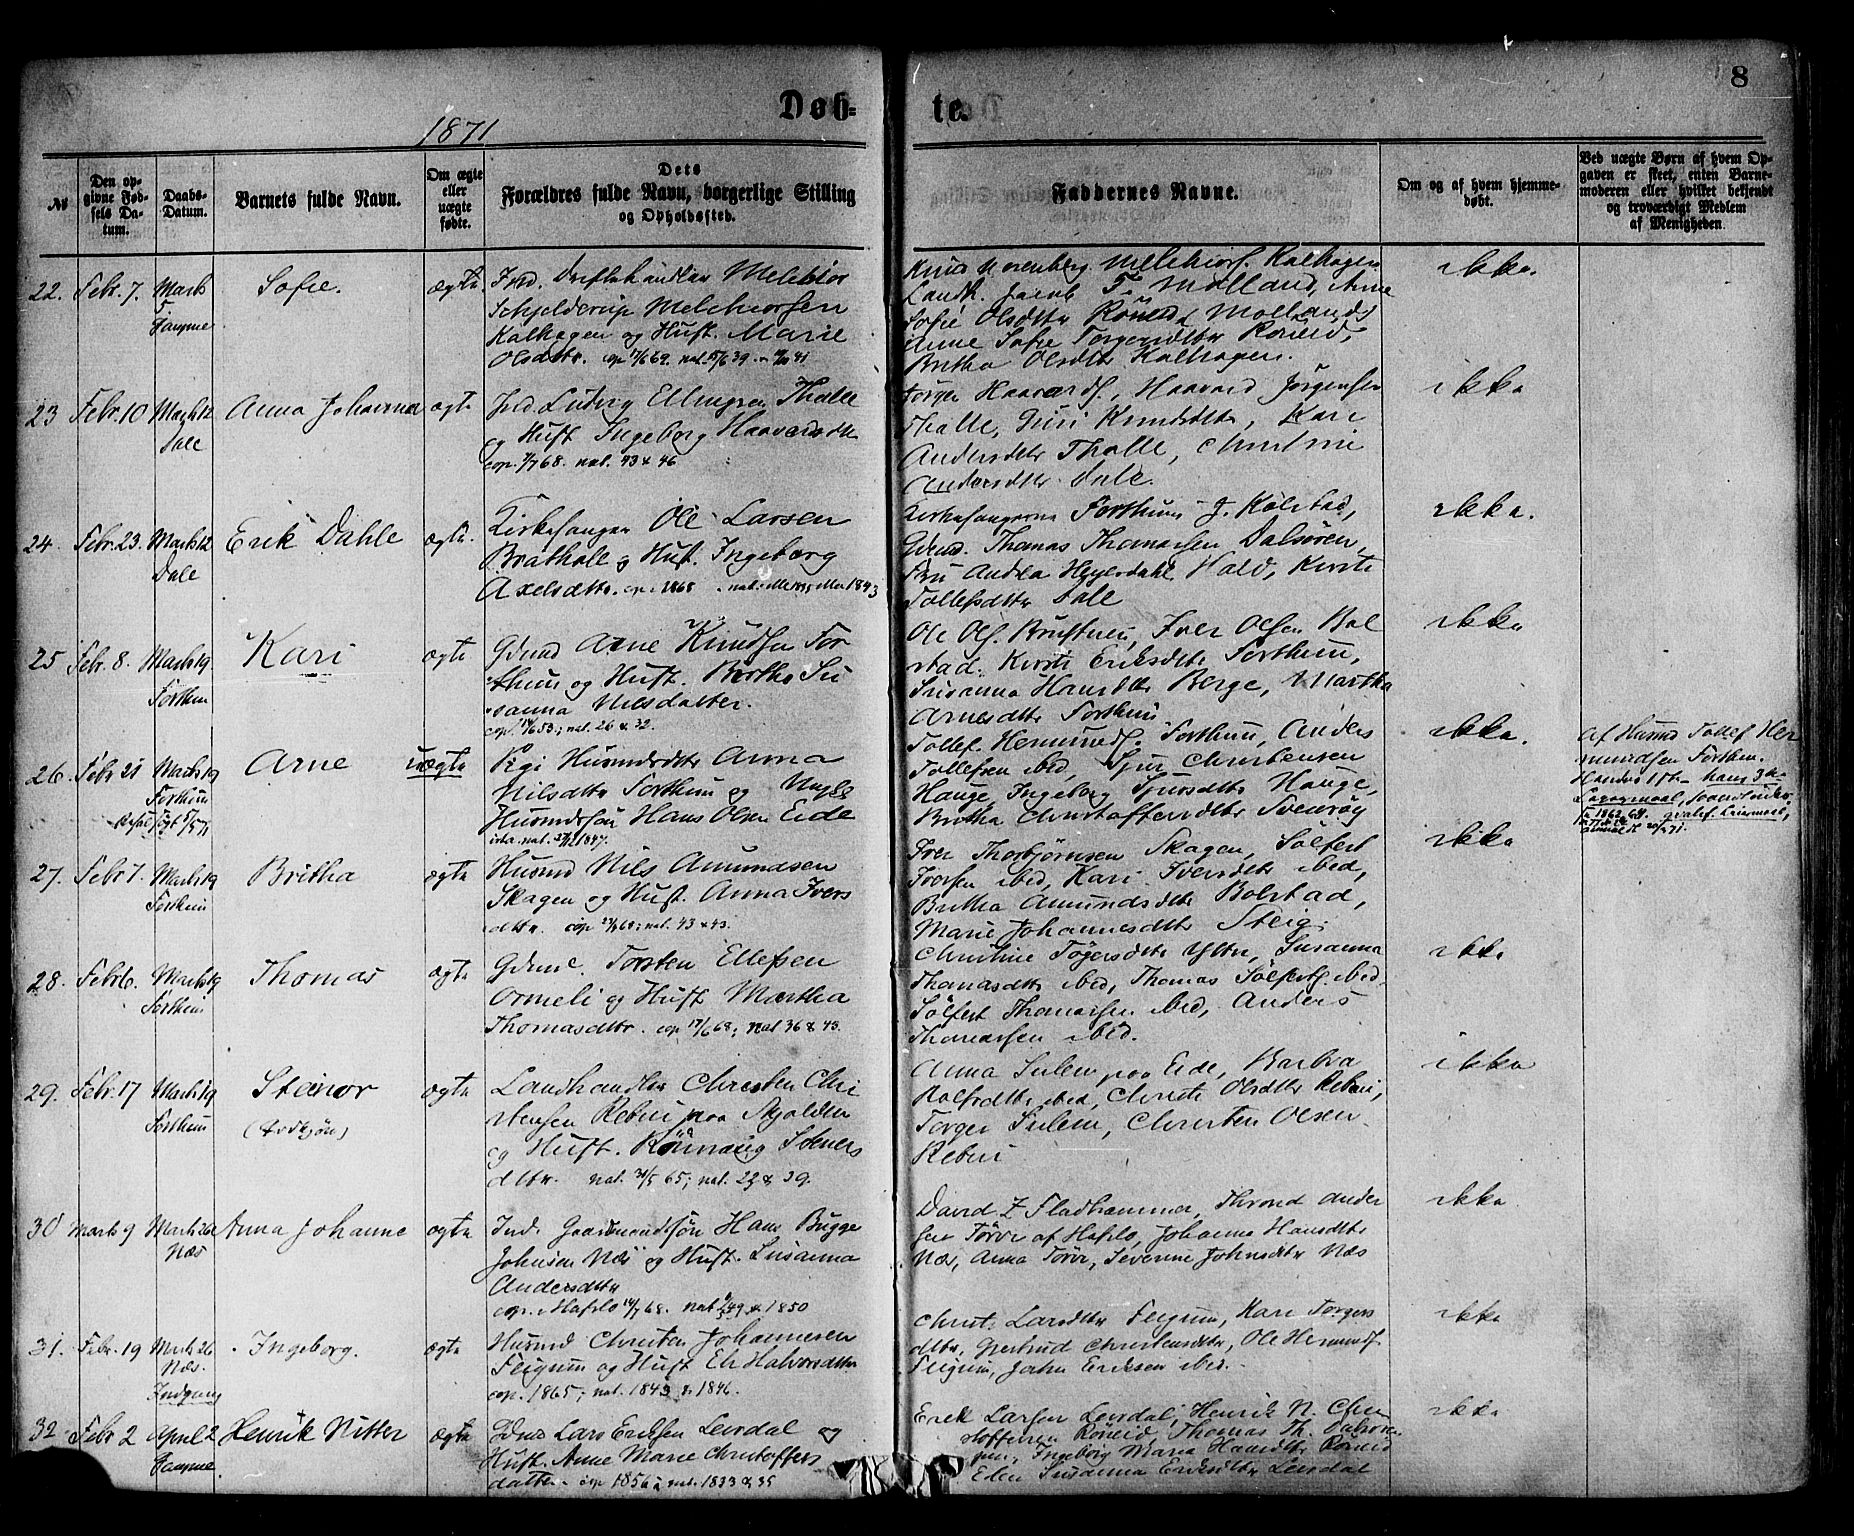 8
Døb-
te.
1871
No
Den op-
givne Fød-
sels Da-
tum.
Daabs-
Datum.
Barnets fulde Navn.
Om ægte
eller
uægte
fødte.
Dets
Forældres fulde Navn, borgerlige Stilling
og Opholdssted.
Faddernes Navne.
Om og af hvem hjemme-
døbt.
Ved uægte Børn af hvem Op-
gaven er skeet, enten Barne-
moderen eller hvilket bekjendt
og troværdigt Medlem
af Menigheden.
22. Febr. 7. Marts 5 Sofie. ægte
Melchior
Schjelderup Melchiorsen
Kalhagen og Hust. Marie
Olsdttr.
Knud Melchiors. Kalhagen
Landh. Jacob T. Molland, Ane
Sofie Olsdttr Röneid Mollands
Anne Sofie Torgersdttr Röneid,
Britha Olsdttr Kalhagen.
ikke.
23 Febr. 10 Marts 12 Anna Johanna ægte
Dale
Ind. Ludvig Ellingsen Thalle
og Hust Ingeborg Haavardsdttr
cop. 68. nat. 43 & 46
Jörgen Haavards., Haavard Jörgensen
Thalle, Guri Knudsdttr, Kari
Andersdttr Thalle, Christine
Andersdttr Dale.
ikke
24. Febr. 23. Marts 12 Erik Dahle ægte.
Dale
Kirkesanger Ole Larsen
Bråthole og Hust. Ingeborg
Axelsdttr. cop. 1868
Kirkesangerne Forthun J. Kölstad,
Gdmd. Thomas Thomassen Dalsören,
Fru Andrea Heyerdahl Hald, Kirsti
Tollefsdttr Dale
ikke.
25 Febr. 8. Marts 19 Kari ægte
Forthun
Gdmd Arne Knudsen For
thun og Hust. Britha Su
sanna Nilsdatter.
nat. 26 & 32.
Ole Ols. Bruflat, Iver Olsen Bol
stad. Kirsti Eriksdttr Forthun,
Susanna Hansdttr Berge, Martha
Arnesdttr Forthun
ikke
26. Febr 21 Marts 19 Arne uægte
Forthun
Pigi Husmdsdttr Anna
Nilsdttr Forthun og Ungk.
Husmdssön Hans Olsen Eide
Tollef. Hermunds. Forthun, Anders
Tollefsen ibid, Sjur Christensen
Hauge, Ingeborg Sjursdttr Hauge,
Britha Christoffersdttr Svensöy
ikke.
af Husmd Tollef Her
mundsen Forthun.
27. Febr 7. Marts 19 Britha ægte
Forthun
Husmd Nils Amundsen
Skagen og Hust. Anna Ivers
dttr. nat. 43 & 43.
Iver Thorbjörnsen Skagen, Sölfest
Iversen ibid, Kari Iversdttr ibid,
Britha Amundsdttr Bolstad,
Marie Johannesdttr Steig.
ikke
28. Febr 6. Marts 19 Thomas ægte
Forthun
Gdmd. Torsten Ellefsen
Ormeli og Hust Martha
Thomasdttr. cop 17/6 68; nat 36 & 43.
Christine Tögersdttr Yttri, Susanna
Thomasdttr ibid, Thomas Sölfestsg ibid
Sölfest Thomassen ibid, Anders
Thomassen ibid.
ikke
29. Febr 17 Marts 19 Steinar ægte
Forthun
Landhandler Christen Chri
stensen Reberi paa Skjolden
og Hust. Rönnaug Steners
dttr. nat. 31/5 65; nat. 23 & 39.
Anna Sulem paa Eide, Barbra
Rolfsdttr ibid, Christi Olsdttr Reberi,
Torger Sulem, Christen Olsen
Reberi
ikke
30 Marts 9 Marts 26 Anna Johanne ægte
Næs
Ind. Gaardmandssön Hans Bugge
Johnsen Næs og Hust. Susanna
Andersdttr
cop. i Hafslo 14/7 68. & 1850
David Z Fladhammer, Thrond Ander
sen Törve af Hafslo, Johanne Hansdttr
Næs, Anna Törve, Severine Johnsdttr Næs
ikke
31. Febr. 19 Marts 26 Ingeborg. ægte
Næs.
Indgang
Husmd Christen Johannesen
Feigum og Hust Eli Halvorsdtter
cop. 1865; nat. 1843 & 1846.
Christ. Larsdttr Feigum, Kari Torgers
dttr, Gertrud Christensdttr, Ole Hermunds.
Feigum, John Eriksen ibid.
ikke
32 Febr 2 April 2 Henrik Nitter ægte
Gdmd Lars Eriksen Leirdal og
Hust. Anne Marie Christoffers
datter. cop 1856; nat. 1833 & 35
Erik Larsen Leirdal, Henrik N. Chri
stoffersen Röneid Thomas Th. Dalsören
Ingeborg Maria Hansdttr Röneid
Elen Susanna Eriksdttr Leirdal
ikke